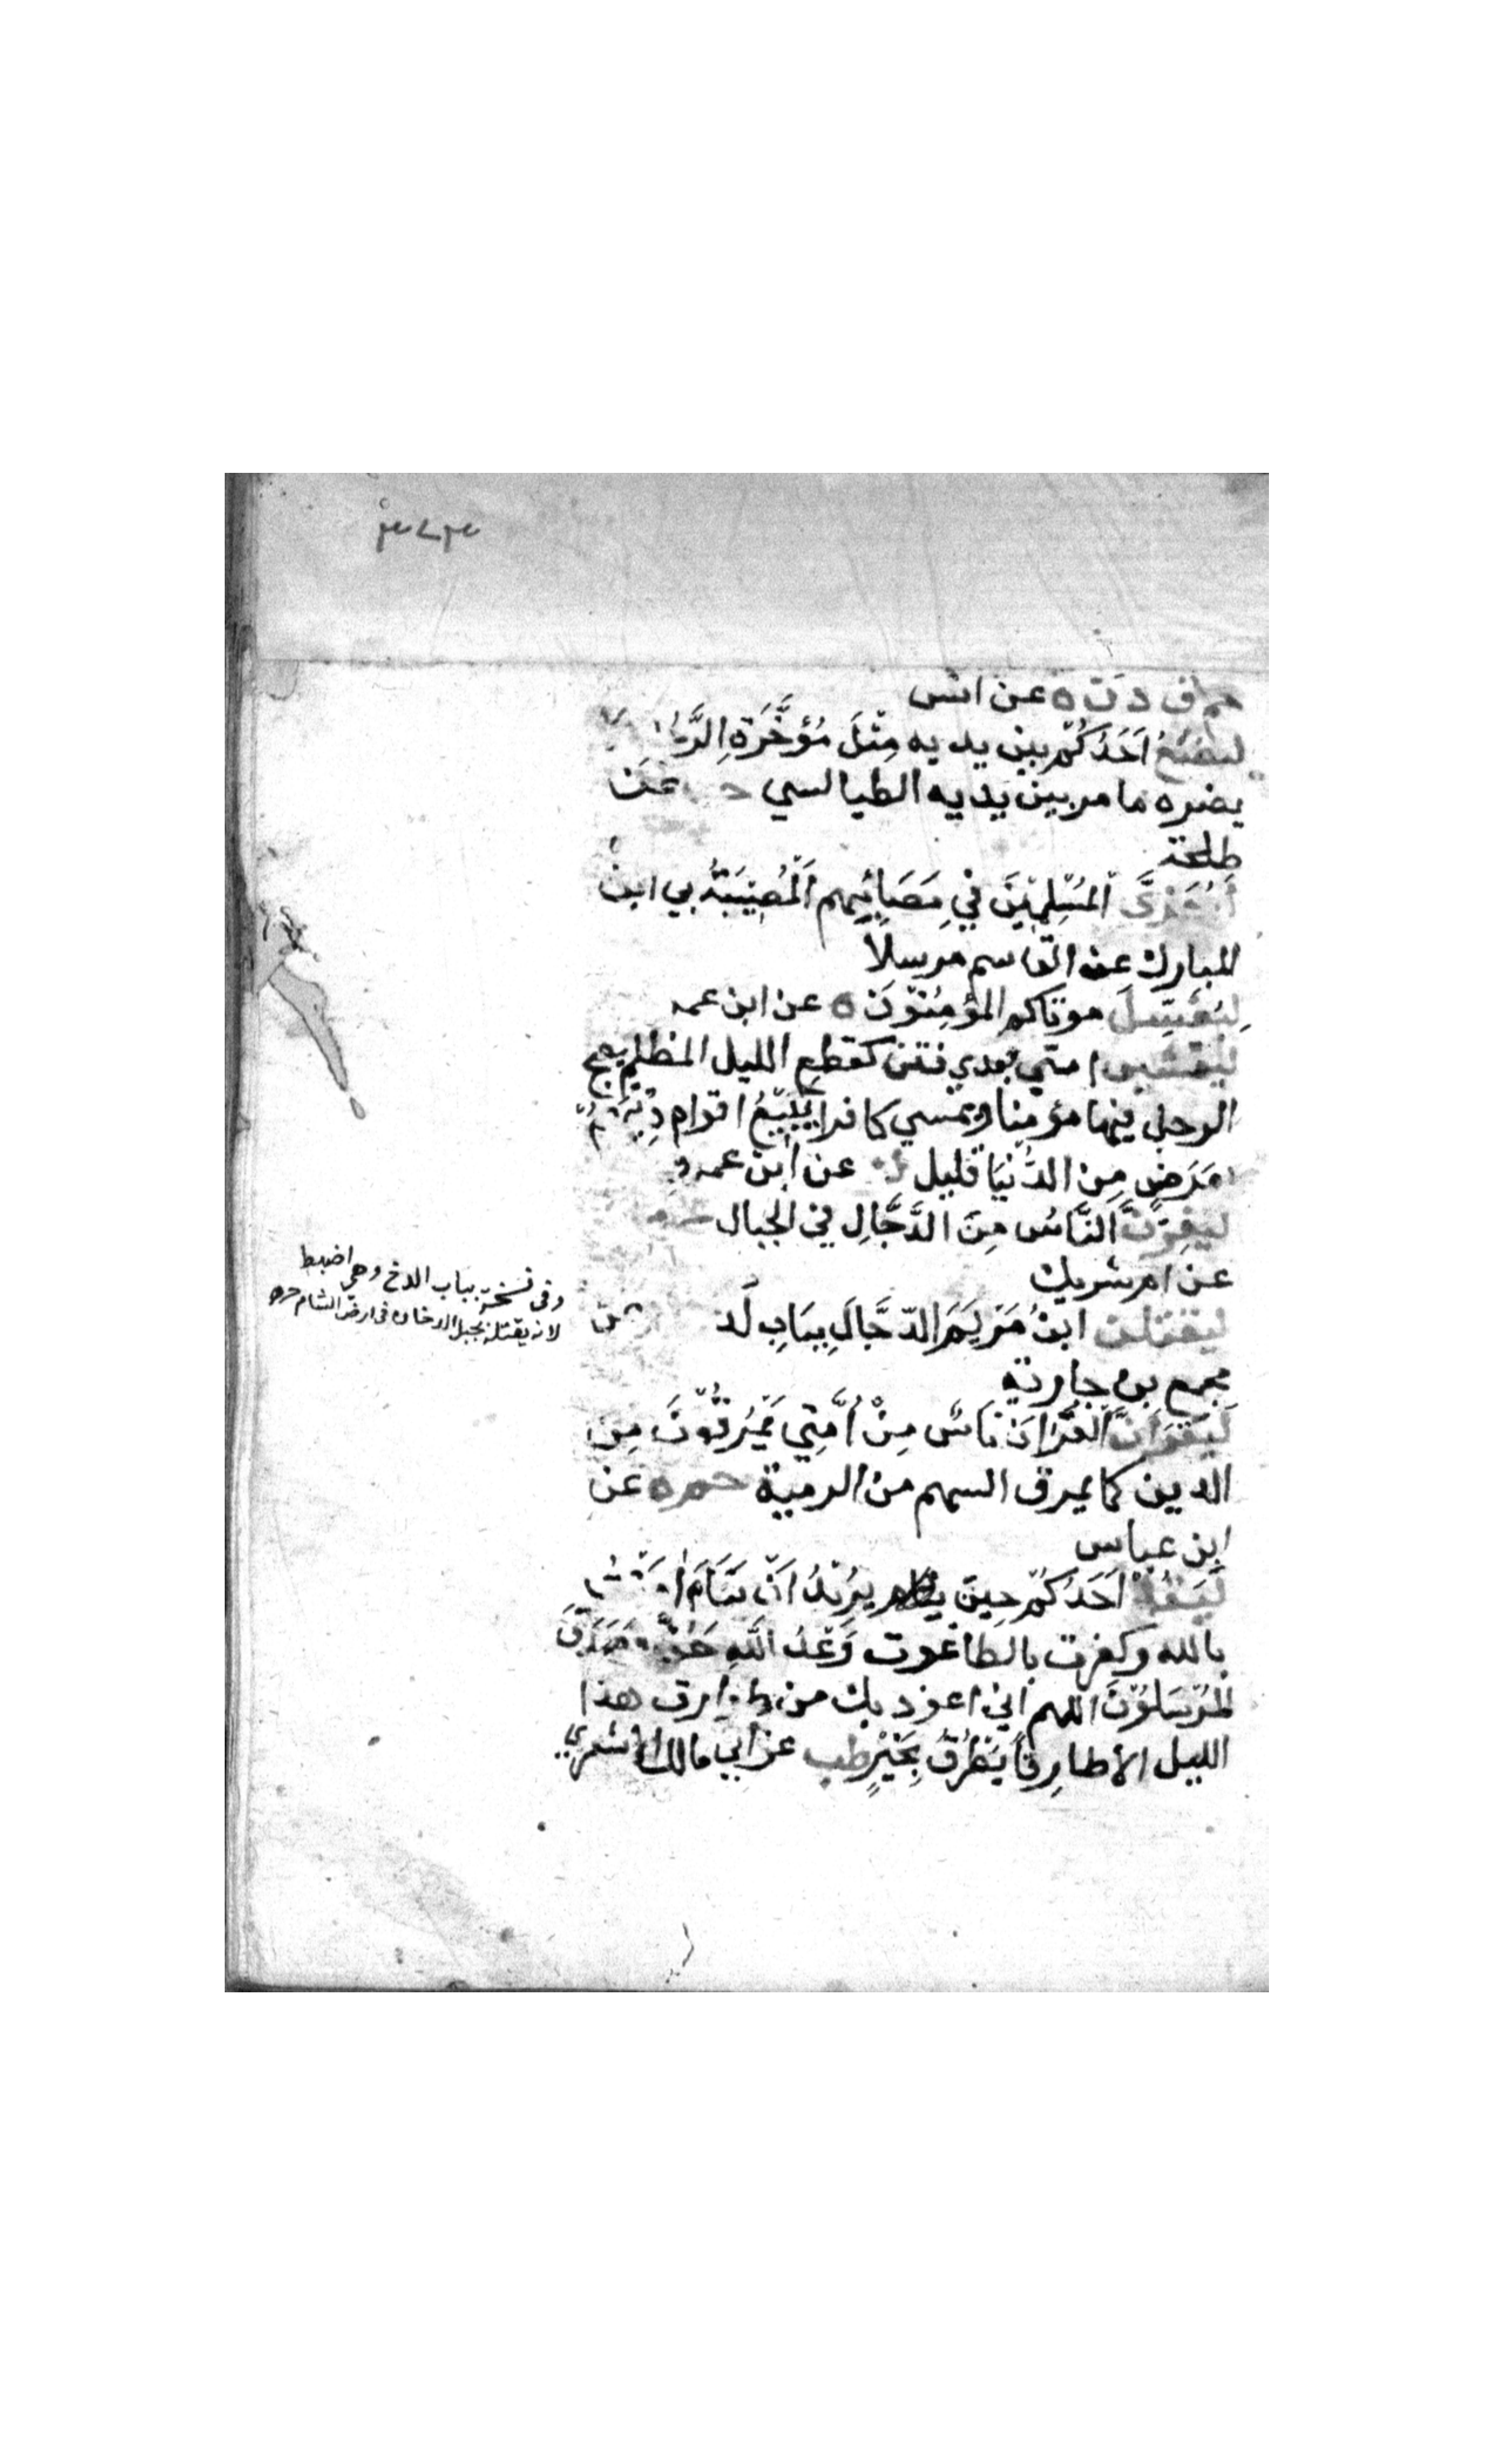 ٣٧٣
حم ق د ت ه عن انس
ليضع اَحَدُكُمْ بين يديه مِثْلَ مُؤَخَّرَةِ الرَّحْلِ
يضره ما مر بين يديه الطيالسي عن
طلحة
المُسْلِمِيْنَ فِي مَصَائِبِهِم اَلْمُصِيْبَةُ بي ابن
المبارك عن القاسم مرسلاً
لِيُغَسِّلَ موتاكم المؤمُنُوْنَ ه عن ابن عمر
ليغشين امتي بعدي فتن كقطع الليل المظلم يصبح
الرجل فيها مؤمِنا ويمسي كافرا يَبِيْعُ اقوام دِيْنَهُمْ
بعَرَضٍ مِن الدُّنيَا قليل ك عن ابن عمرو
لَيَفِرَّنَّ النَّاسُ مِنَ الدَّجَّالِ في الجبال
عن ام شريك
ليقتلن ابنُ مَرْيَمَ الدّجَّالَ بِبَابِ لُد عن
مجمع بن جارية
لَيَقْرَاَنَّ القُرْاٰنَ نَاسٌ مِنْ اُمَّتِي يَمْرُقُوْنَ مِن
الدين كما يمرق السهم من الرمية حم ه عن
ابن عباس
لِيَقُلْ اَحَدُكُمْ حِينَ يُرِيْدُ اَنْ يَنَامَ اٰمَنْتُ
بالله وكفرت بالطاغوت وَعْدُ اللهِ حَقٌّ وصَدَقَ
المُرْسَلُوْنَ اللهم اني اعوذ بك من طوارق هذا
الليل الا طارِقاً يَطْرُقُ بِخَيْرٍ طب عن ابي مالك الاشعري
وفي نسخة بباب الدخ وهي اضبط
لانه يقتله بجبل الدخان في ارض الشام